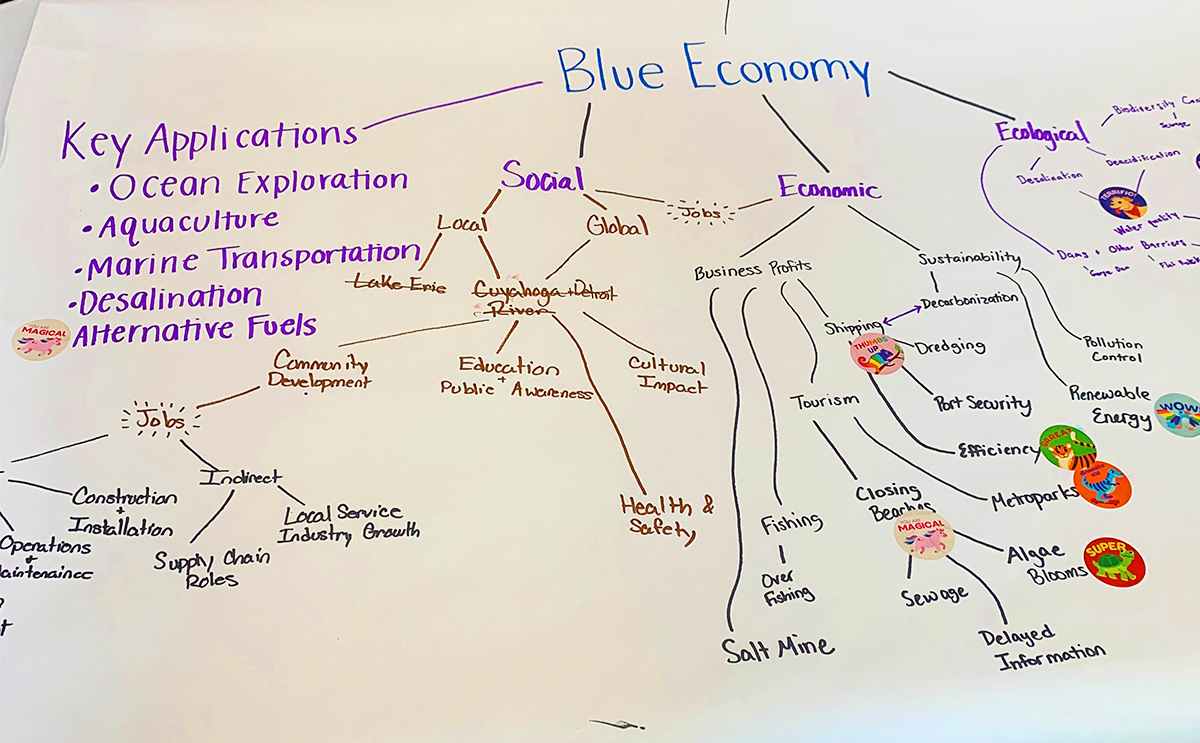 Blue Economy
Key Applications
• Ocean Exploration
• Aquaculture
• Marine Transportation
• Desalination
• Alternative Fuels
YOU ARE
MAGICAL
Social
Local
Global
Jobs
Lake Erie
Cuyahoga + Detroit
River
Community
Development
Education
+
Public Awareness
Cultural
Impact
Health &
Safety
Jobs
Construction
+
Installation
Operations
+
Indirect
Supply Chain
Roles
Local Service
Industry Growth
Economic
Business Profits
Shipping
THUMBS
UP
Dredging
Port Security
Efficiency
GREAT
Tourism
Metroparks
Closing
Beaches
YOU ARE
MAGICAL
Sewage
Delayed
Information
Algae
Blooms
SUPER
Fishing
Over
Fishing
Salt Mine
Sustainability
Decarbonization
Pollution
Control
Renewable
Energy
WOW
Ecological
Biodiversity
Desalination
Deacidification
TERRIFIC
Water quality
Dams + Other Barriers